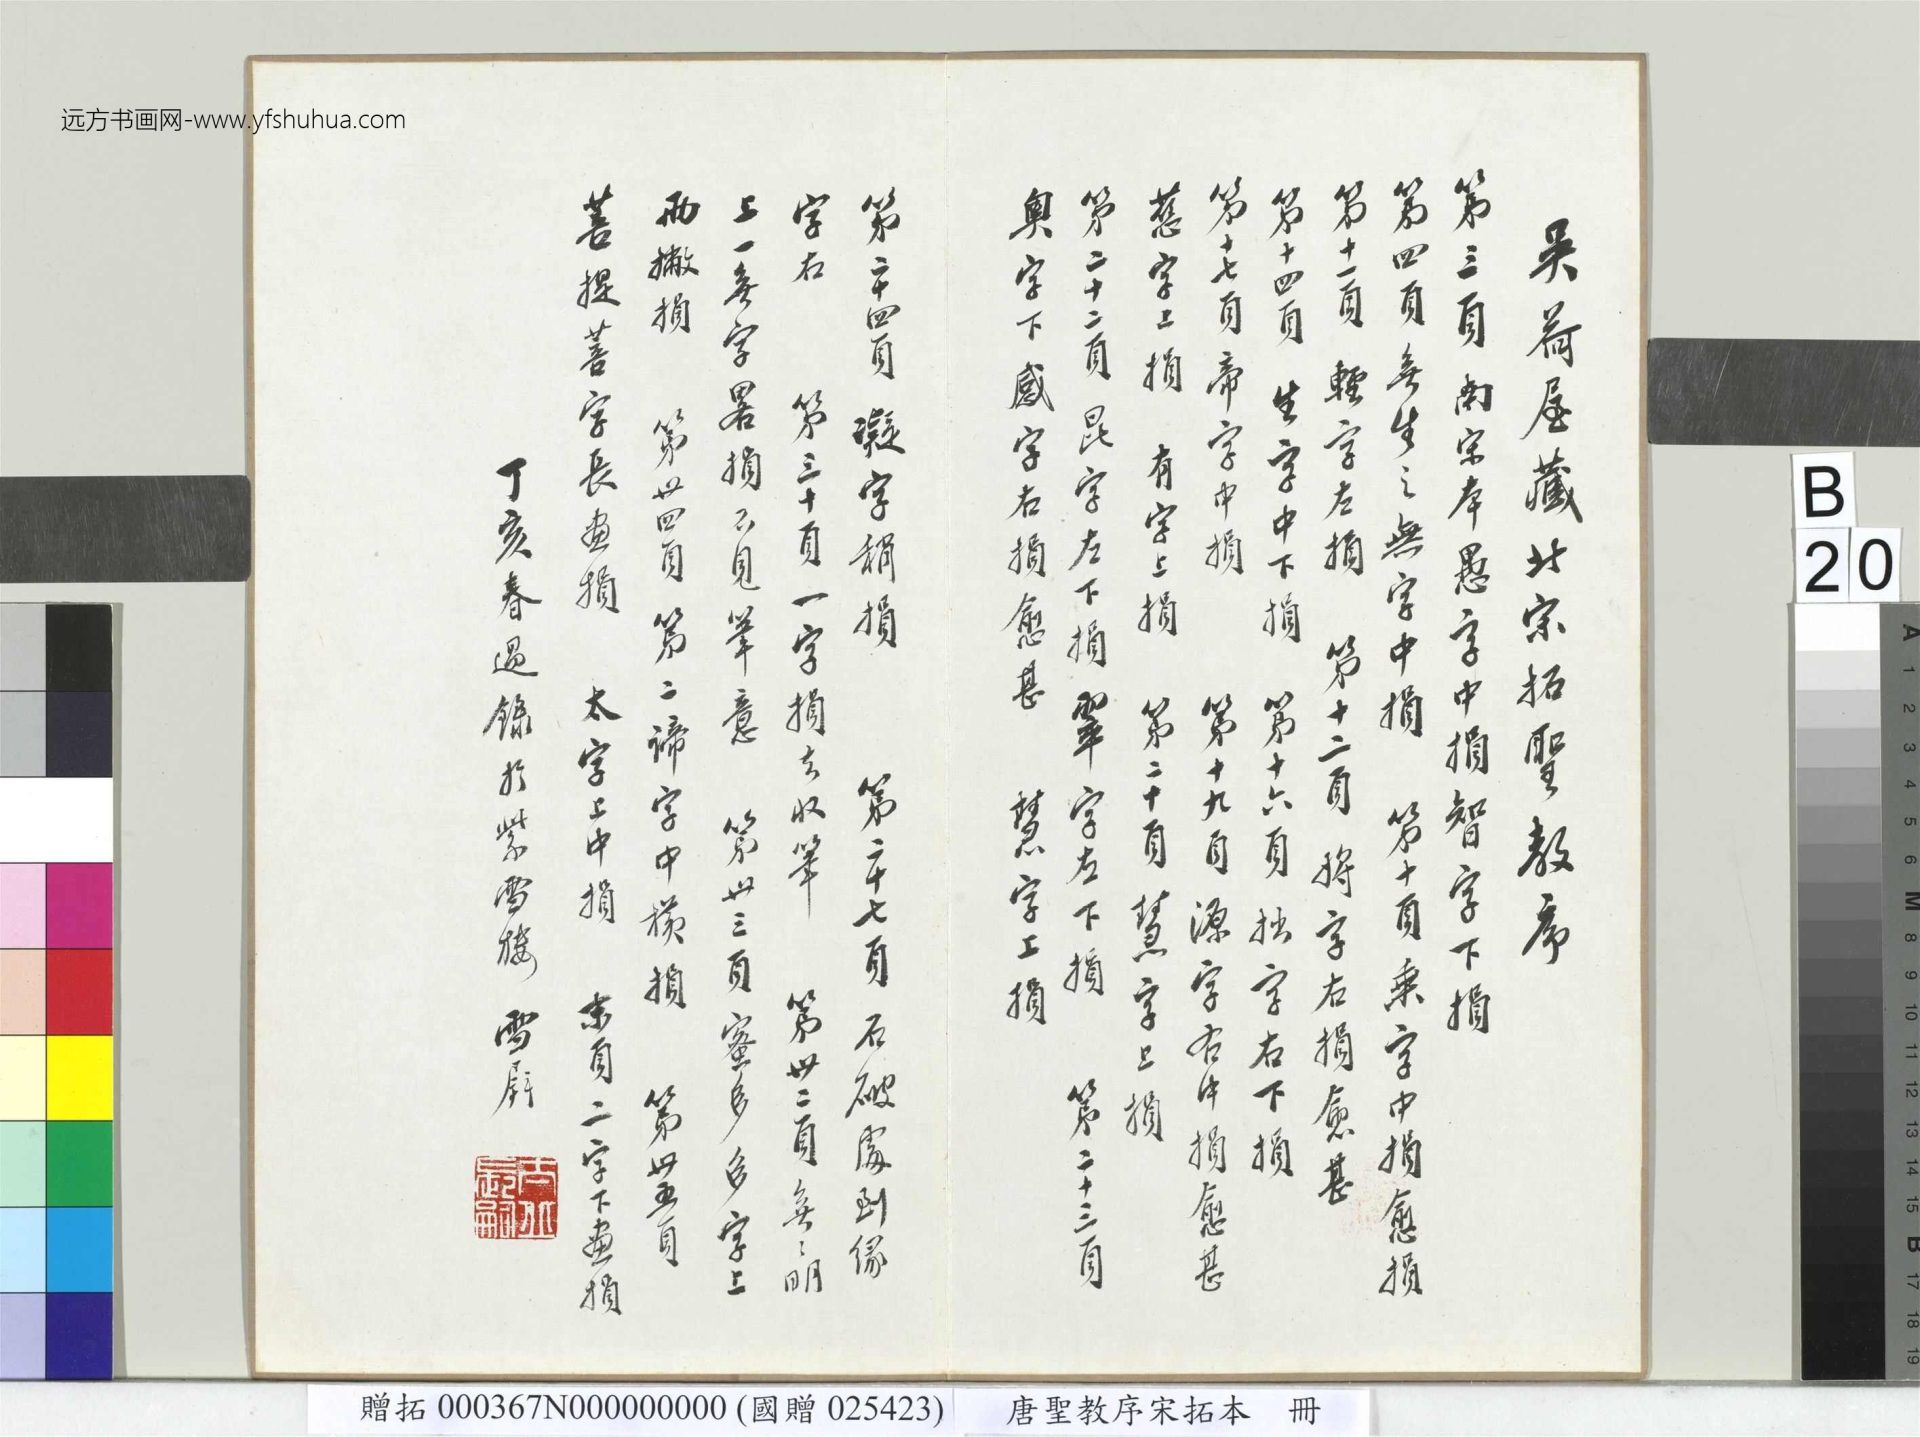 吳荷屋藏北宋拓聖教序
第三頁 南宋本愚字中損智字下損
第四頁無生之無字中損 第十頁乘字中損愈損
第十一頁 輕字左損 第十二頁 將字右損愈甚
第十四頁 生字中下損 第十六頁 拙字右下損
第十七頁 帝字中損 第十九頁 源字右中損愈甚
舊字上損 有字上損 第二十頁 慧字上損
第二十二頁 昆字左下損 翠字左下損 第二十三頁
奧字下 感字右損愈甚 慧字上損
第二十四頁 礙字稍損 第二十七頁 石破處到緣
字右 第三十頁 一字損去收筆 第卅二頁 無明
上一無字略損不見筆意 第卅三頁 蜜多多字上
兩撇損 第卅四頁 第二諦字中橫損 第卅五頁
菩提菩字長畫損 太字上中損 末頁二字下畫損
丁亥春過錄於紫雪樓 雪屛
远方书画网-www.yfshuhua.com
B
20
贈拓 000367N000000000 (國贈 025423) 唐聖教序宋拓本 冊
A 1 2 3 4 5 6 M 8 9 10 11 12 13 14 15 B 17 18 19